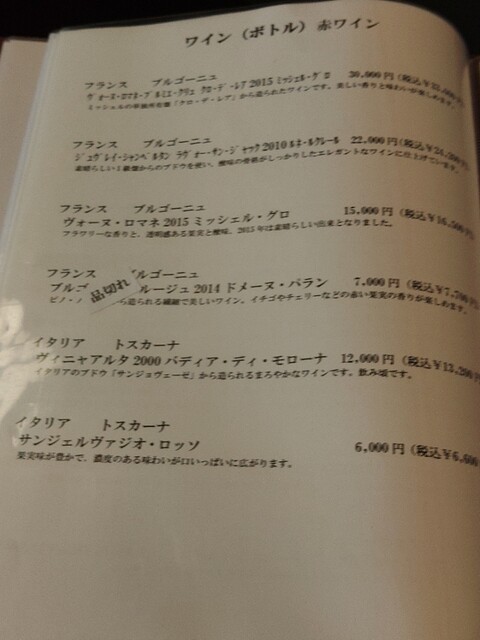 ワイン（ボトル）赤ワイン
フランス　ブルゴーニュ
ヴォーヌ・ロマネ・プルミエ・クリュ クロ・デ・レア 2015 ミッシェル・グロ 30,000円（税込￥33,000円）
ミッシェルの単独所有畑「クロ・デ・レア」から造られたワインです。美しい香りと味わいが楽しめます。
フランス　ブルゴーニュ
ジュヴレイ・シャンベルタン ラヴォー・サン・ジャック 2010 ルネ・ルクレール 22,000円（税込￥24,200円）
素晴らしい1級畑からのブドウを使い、酸味の骨格がしっかりしたエレガントなワインに仕上げています。
フランス　ブルゴーニュ
ヴォーヌ・ロマネ 2015 ミッシェル・グロ 15,000円（税込￥16,500円）
フラワリーな香りと、透明感ある果実と酸味。2015年は素晴らしい出来となりました。
フランス　ブルゴーニュ
ブルゴ 品切れ ルージュ 2014 ドメーヌ・バラン 7,000円（税込￥7,700円）
ピノ・ノ ら造られる繊細で美しいワイン。イチゴやチェリーなどの赤い果実の香りが楽しめます。
イタリア　トスカーナ
ヴィニャアルタ 2000 バディア・ディ・モローナ 12,000円（税込￥13,200円）
イタリアのブドウ「サンジョヴェーゼ」から造られるまろやかなワインです。飲み頃です。
イタリア　トスカーナ
サンジェルヴァジオ・ロッソ 6,000円（税込￥6,600
果実味が豊かで、濃度のある味わいが口いっぱいに広がります。